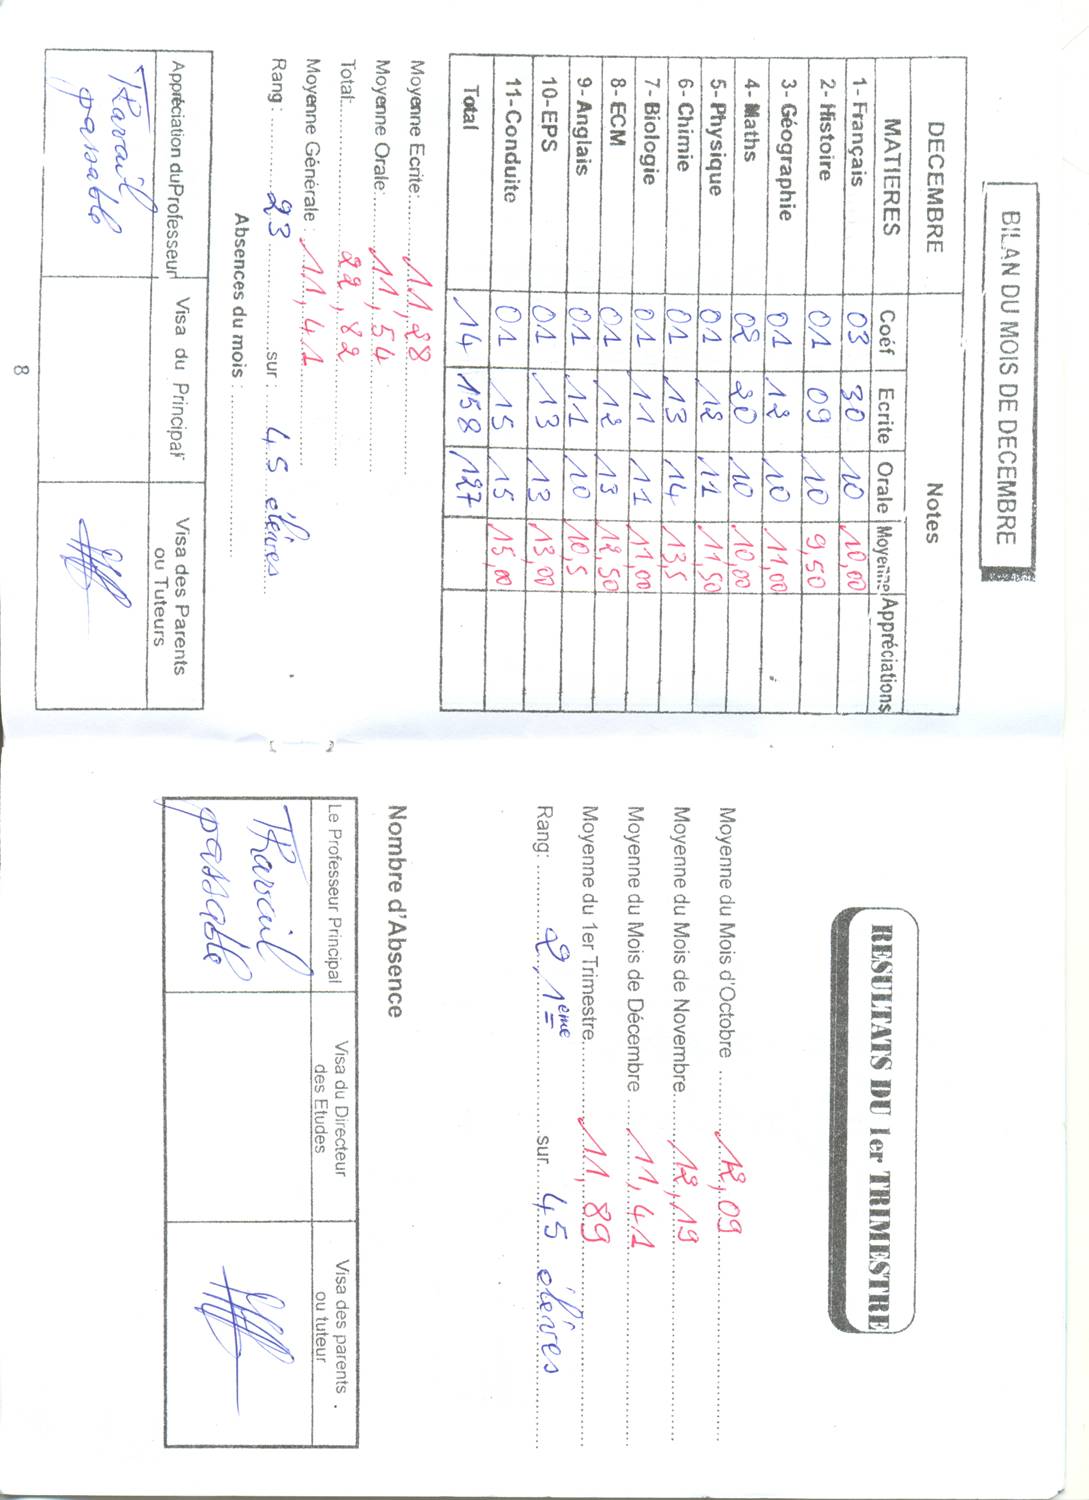 BILAN DU MOIS DE DECEMBRE
DECEMBRE Notes
MATIERES Coéf Ecrite Orale Moyenne Appréciations
1- Français 03 30 10 10,00
2- Histoire 01 09 10 9,50
3- Géographie 01 12 10 11,00
4- Maths 02 20 10 10,00
5- Physique 01 12 11 11,50
6- Chimie 01 13 14 13,5
7- Biologie 01 11 11 11,00
8- ECM 01 12 13 12,50
9- Anglais 01 11 10 10,5
10- EPS 01 13 13 13,00
11- Conduite 01 15 15 15,00
Total 14 158 127
Moyenne Ecrite: 11,28
Moyenne Orale: 11,54
Total: 22,82
Moyenne Générale : 11,41
Rang : 23 sur : 45 élèves
Absences du mois :
Appréciation du Professeur Visa du Principal Visa des Parents
ou Tuteurs
TRavail
passable
8
RESULTATS DU 1er TRIMESTRE
Moyenne du Mois d'Octobre 12,09
Moyenne du Mois de Novembre 12,19
Moyenne du Mois de Décembre 11,41
Moyenne du 1er Trimestre 11,89
Rang: 21ème sur 45 élèves
Nombre d'Absence
Le Professeur Principal Visa du Directeur Visa des parents
des Etudes ou tuteur
TRavail
passable